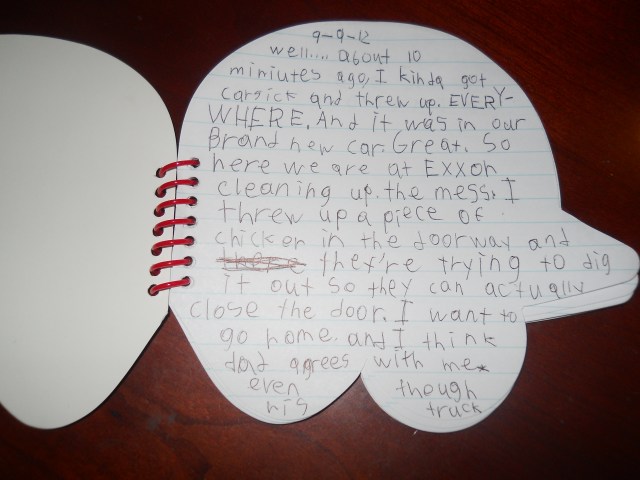 9-9-12
well.... about 10
miniutes ago, I kinda got
carsick and threw up. EVERY-
WHERE. And it was in our
Brand new car. Great. So
here we are at Exxon
cleaning up the mess. I
threw up a piece of
chicken in the doorway and
they're trying to dig
it out so they can actually
close the door. I want to
go home. and I think
dad agrees with me.
even though
his truck